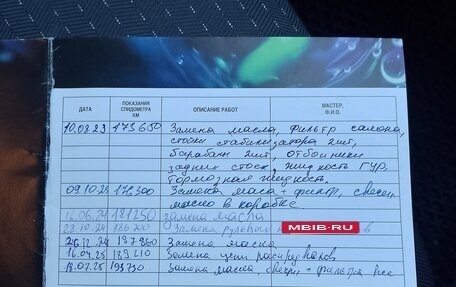 ДАТА ПОКАЗАНИЯ СПИДОМЕТРА КМ ОПИСАНИЕ РАБОТ МАСТЕР, Ф.И.О.
10.08.23 173650 Замена масла, фильтр салона,
стойки стабилизатора 2шт,
барабаны 2шт, отбойники
задних стоек, жидкость ГУР,
Тормозная жидкость.
09.10.24 176300 Замена масла + фильтр, свечи,
масло в коробке
16.06.24 181250 замена масла
23.10.24 Замена рулевого в
MBIB-RU
26.12.24 Замена масла
16.04.25 189210 Замена цепи распредвалов
Замена масла, свечи, + фильтра все